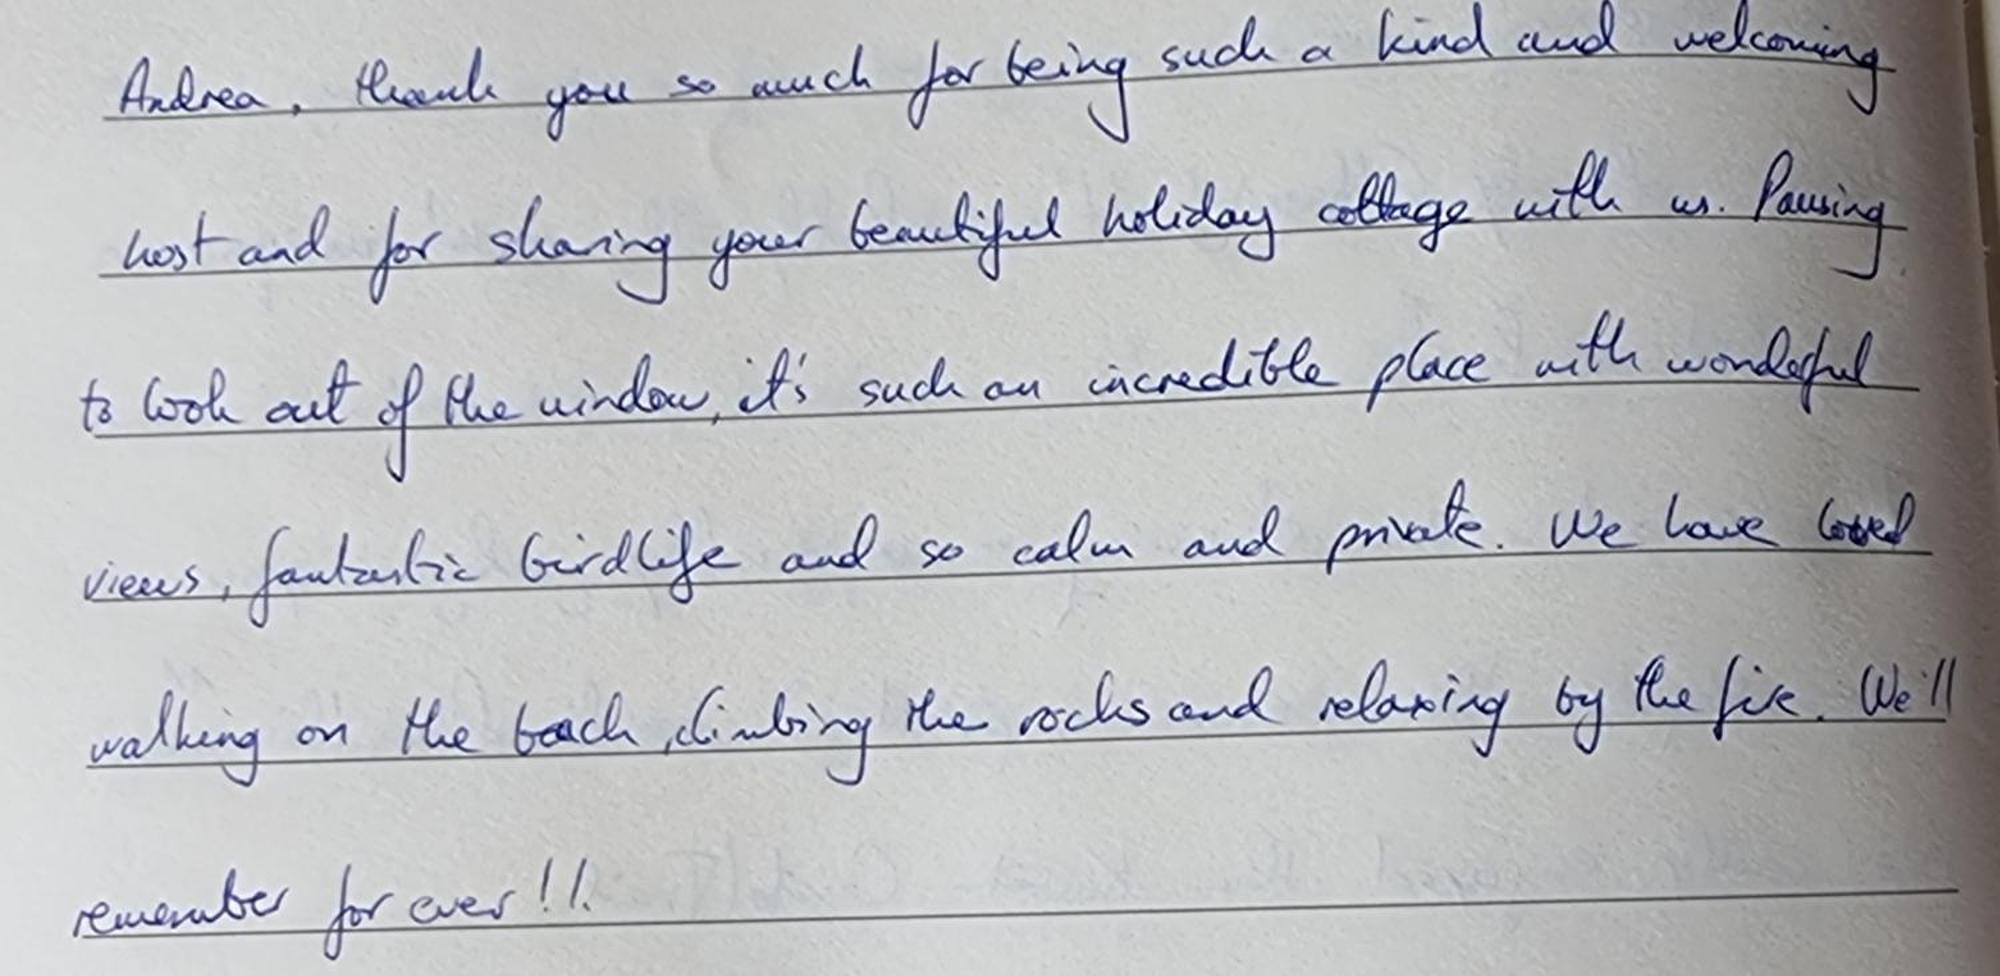 Andrea, thank you so much for being such a kind and welcoming
host and for sharing your beautiful holiday cottage with us. Pausing
to look out of the window, it's such an incredible place with wonderful
views, fantastic birdlife and so calm and private. We have loved
walking on the beach, climbing the rocks and relaxing by the fire. We'll
remember for ever!!